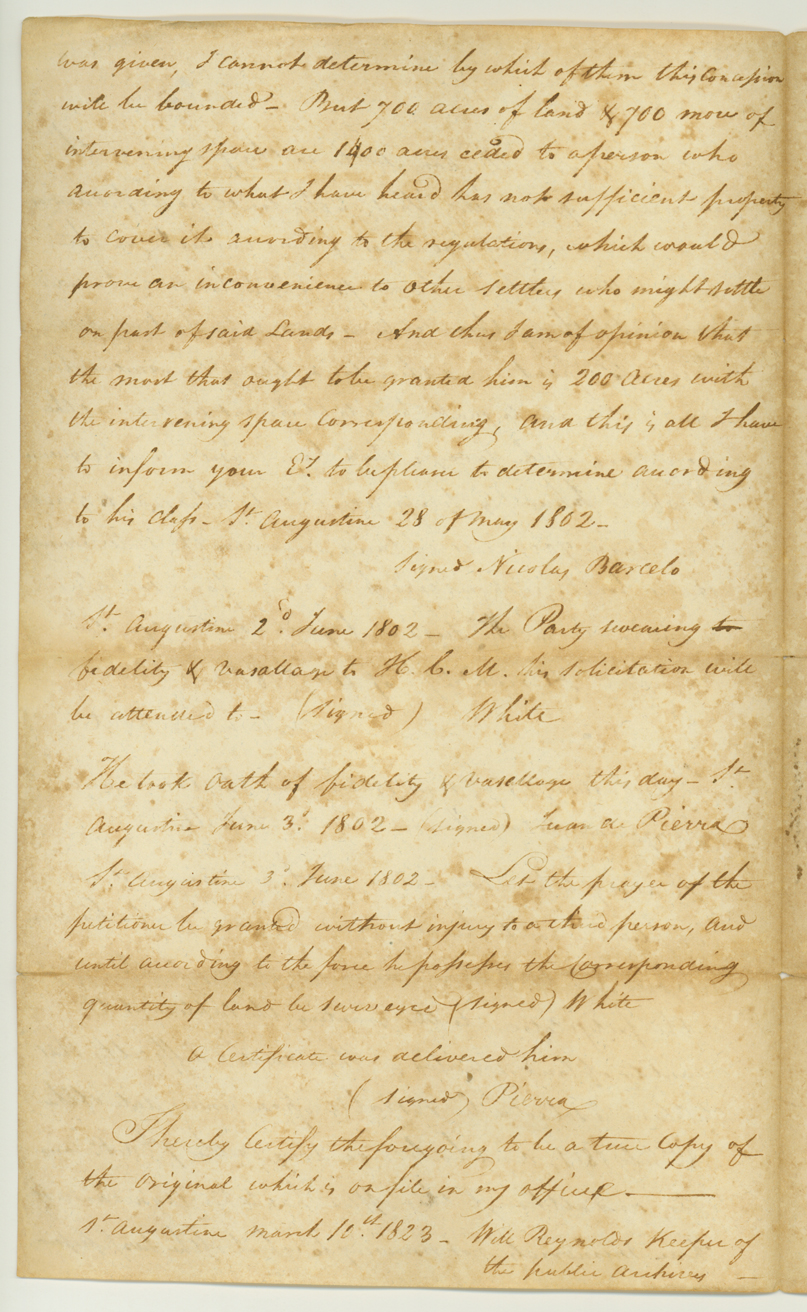 was given, I cannot determine by which of them this Concession
will be bounded - But 700 acres of land & 700 more of
intervening space are 1400 acres ceded to a person who
according to what I have heard has not sufficient property
to cover it according to the regulations, which would
prove an inconvenience to other settlers who might settle
on part of said Lands - And thus I am of opinion that
the most that ought to be granted him is 200 Acres with
the intervening space Corresponding, and this is all I have
to inform your Ey. to be please to determine according
to his Class - St. Augustine 28 of May 1802 -
Signed Nicolas Barcelo
St. Augustine 2d. June 1802 - The Party swearing to
fidelity & vasallage to H. C. M. his solicitation will
be attended to - (Signed) White
He took Oath of fidelity & vasallage this day - St.
Augustine June 3d. 1802 - (signed) Juan de Pierra
St. Augustine 3d. June 1802 - Let the prayer of the
petitioner be granted without injury to a third person, and
until according to the force he possesses the Corresponding
quantity of land be surveyed (signed) White
a Certificate was delivered him
(signed) Pierra
I hereby Certify the foregoing to be a true Copy of
the Original which is on file in my office.
St. Augustine March 10th. 1823 - Will Reynolds Keeper of
the public archives -